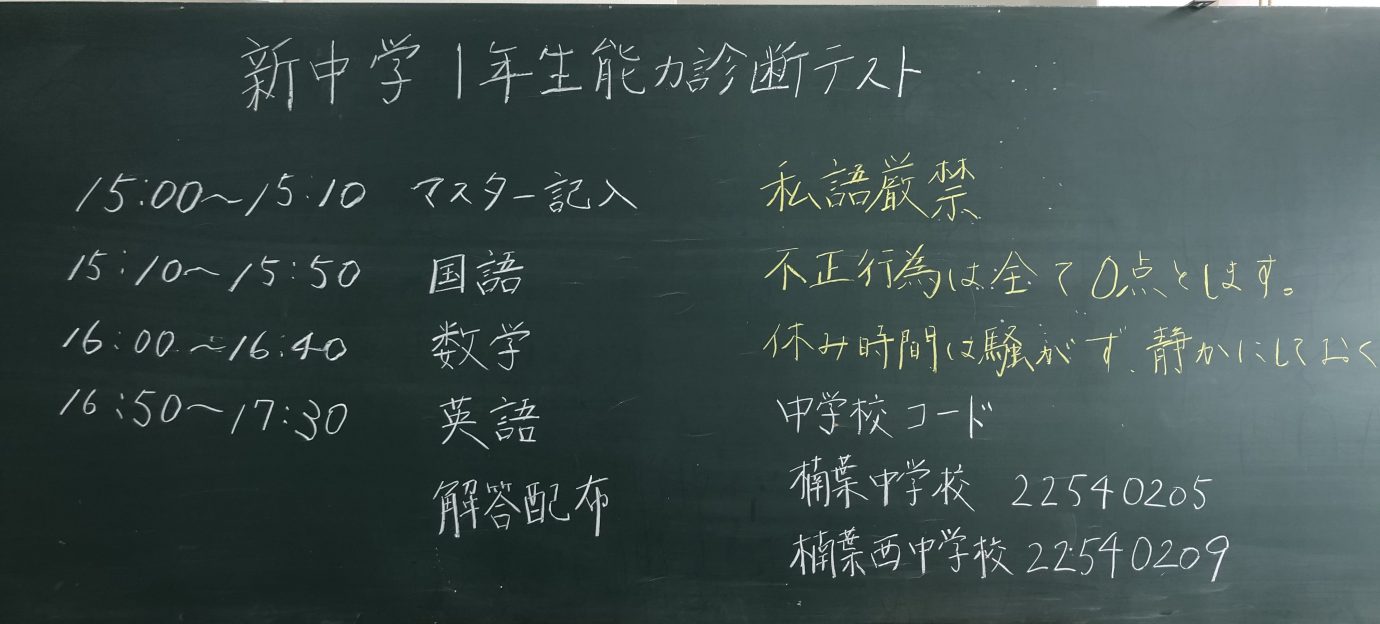 新中学1年生能力診断テスト
15:00〜15:10 マスター記入
15:10〜15:50 国語
16:00〜16:40 数学
16:50〜17:30 英語
解答配布
私語厳禁
不正行為は全て0点とします。
休み時間は騒がず、静かにしておく
中学校コード
楠葉中学校 22540205
楠葉西中学校 22540209